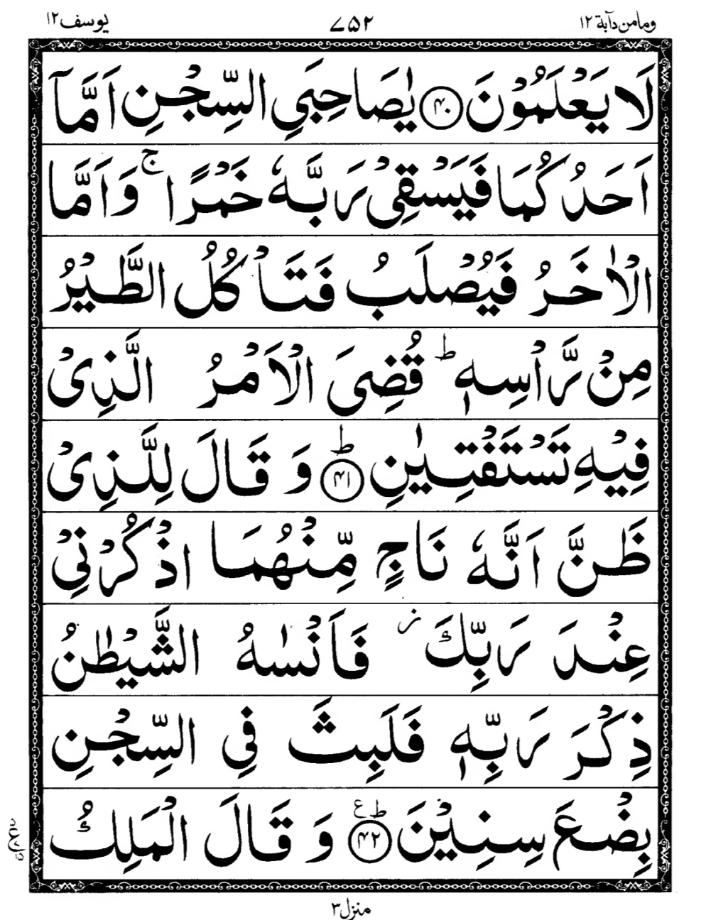 ومامن دآبة ۱۲ ۷۵۲ یوسف ۱۲
لَا يَعۡلَمُوۡنَ ﴿۴۰﴾ يٰصَاحِبَىِ السِّجۡنِ اَمَّاۤ
اَحَدُكُمَا فَيَسۡقِىۡ رَبَّهٗ خَمۡرًا ۚ وَاَمَّا
الۡاٰخَرُ فَيُصۡلَبُ فَتَاۡكُلُ الطَّيۡرُ
مِنۡ رَّاۡسِهٖ ؕ قُضِىَ الۡاَمۡرُ الَّذِىۡ
فِيۡهِ تَسۡتَفۡتِيٰنِ ؕ ﴿۴۱﴾ وَ قَالَ لِلَّذِىۡ
ظَنَّ اَنَّهٗ نَاجٍ مِّنۡهُمَا اذۡكُرۡنِىۡ
عِنۡدَ رَبِّكَ ز فَاَنۡسٰٮهُ الشَّيۡطٰنُ
ذِكۡرَ رَبِّهٖ فَلَبِثَ فِى السِّجۡنِ
بِضۡعَ سِنِيۡنَ ؕ ع ﴿۴۲﴾ وَ قَالَ الۡمَلِكُ
منزل ۳